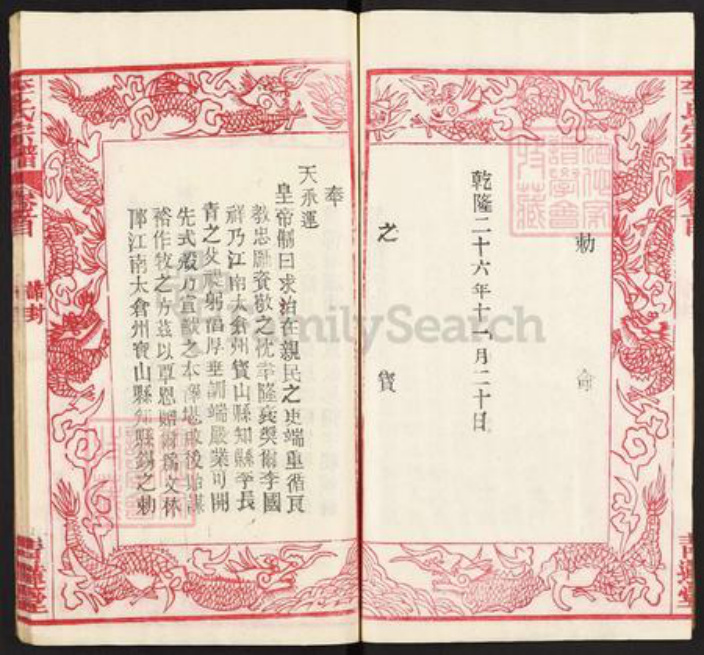 李氏宗譜
卷首
敕命
之寶
乾隆二十六年十一月二十日
道德家
譜學會
特藏
奉
天承運
皇帝制曰求治在親民之吏端重循良
教忠勵資敬之忱聿隆褒獎爾李國
祥乃江南太倉州寶山縣知縣李長
青之父禔躬淳厚垂訓端嚴業可開
先式穀乃宣猷之本澤堪啟後貽謀
裕作牧之方茲以覃恩贈爾為文林
郎江南太倉州寶山縣知縣錫之敕
李氏宗譜
卷首
誥封
FamilySearch